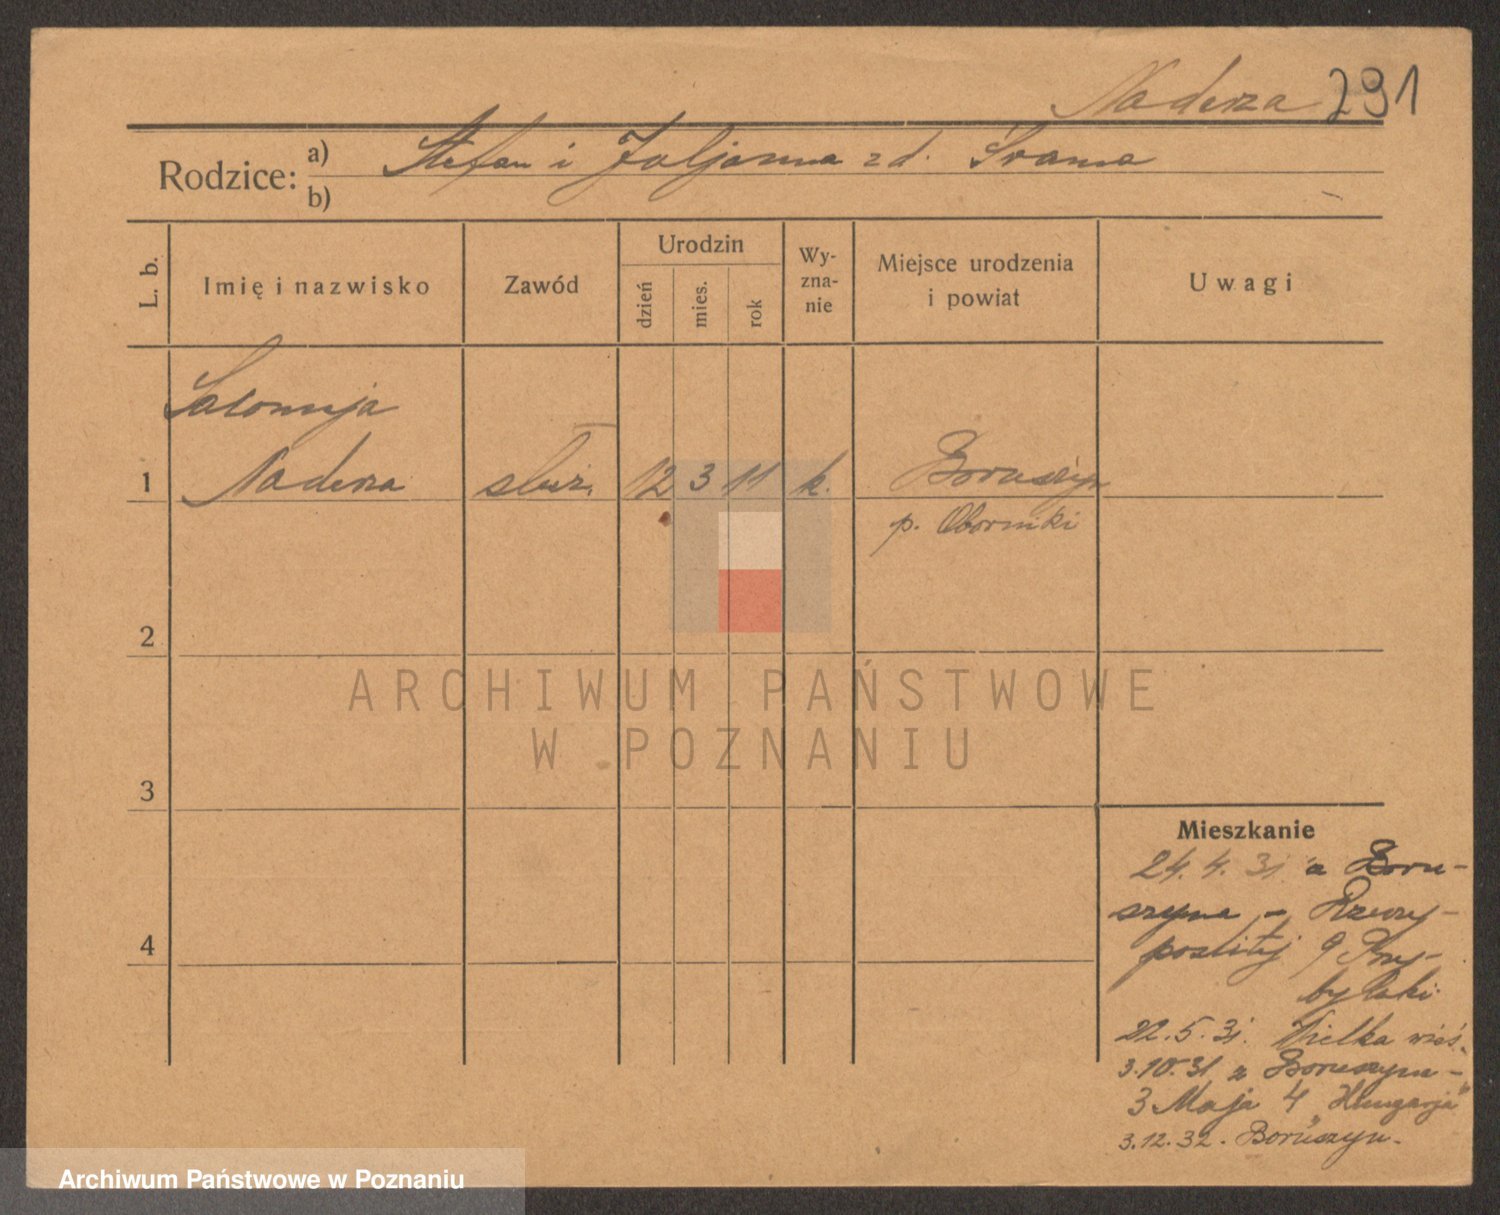 Naderza 291
Rodzice: a) Stefan i Juljanna z d. Srama
b)
L. b. Imię i nazwisko Zawód Urodzin dzień mies. rok Wy-zna-nie Miejsce urodzenia i powiat Uwagi
Salomeja
1 Naderza służ. 12 3 11 k. Boruszyn
p. Oborniki
2
3
4
Mieszkanie
24. 4. 31 z Boru-
szyna - Rzeczy-
pospolitej 9 Przy-
bylski
22. 5. 31. Wielka wieś.
3.10.31 z Boruszyna -
3 Maja 4 „Hungarja"
3.12.32. Boruszyn.
ARCHIWUM PAŃSTWOWE
W POZNANIU
Archiwum Państwowe w Poznaniu